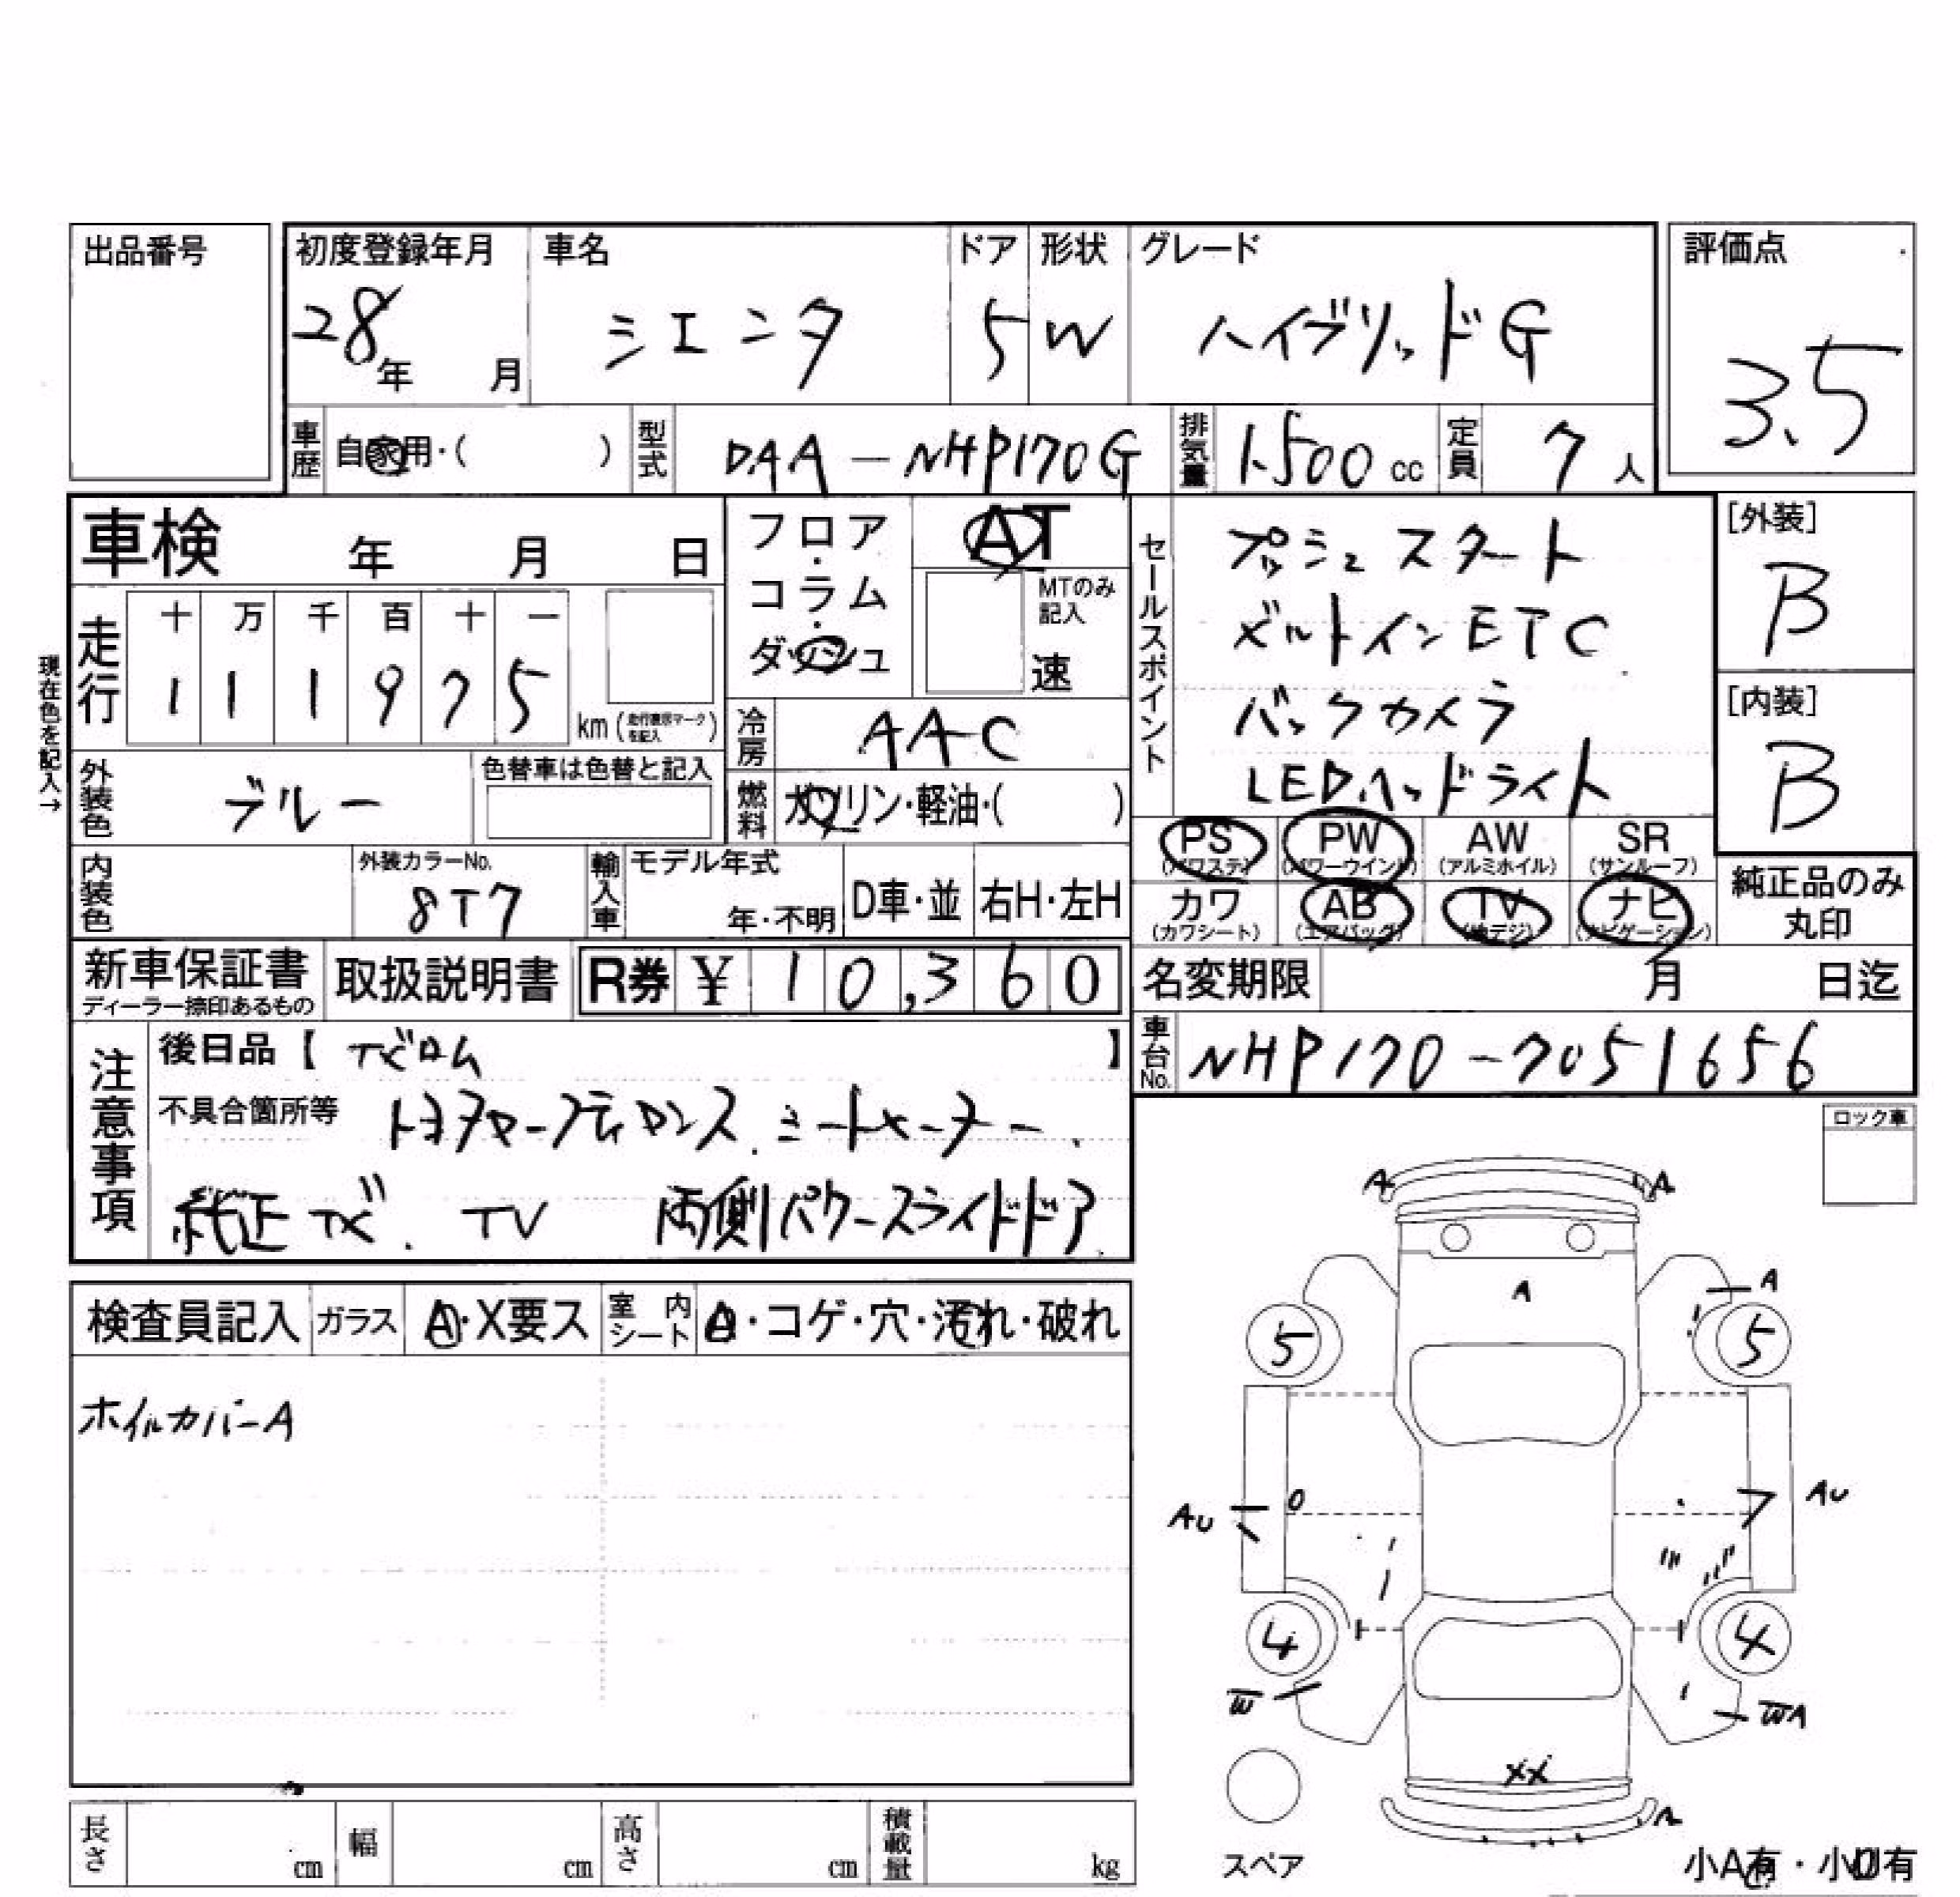 出品番号
初度登録年月 車名 ドア 形状 グレード 評価点
28年 月 シエンタ 5 W ハイブリッドG 3.5
車歴 自家用・( ) 型式 DAA-NHP170G 排気量 1500 cc 定員 7 人
車検 年 月 日
フロア・コラム・ダッシュ
AT
MTのみ記入
速
セールスポイント
プッシュスタート
ビルトインETC
バックカメラ
LEDヘッドライト
[外装]
B
[内装]
B
現在色を記入→
走行 十 万 千 百 十 一
1 1 1 9 7 5 km (走行表示マークを記入)
冷房 AAC
外装色 ブルー 色替車は色替と記入
燃料 ガソリン・軽油・( )
PS (パワステ) PW (パワーウインド) AW (アルミホイル) SR (サンルーフ)
カワ (カワシート) AB (エアバッグ) TV (地デジ) ナビ (ナビゲーション)
純正品のみ丸印
内装色 外装カラーNo. 8T7 輸入車 モデル年式 年・不明 D車・並 右H・左H
新車保証書 ディーラー捺印あるもの 取扱説明書 R券 ¥ 10,360
名変期限 月 日迄
車台No. NHP170-7051656
注意事項
後日品【 ナビロム 】
不具合箇所等 シートヒーター.
純正ナビ. TV 両側パワースライドドア
ロック車
検査員記入 ガラス A・X要ス 室内シート A・コゲ・穴・汚れ・破れ
ホイルカバーA
A A
A A
5 5
AU AU
4 4
W WA
XX
A
スペア
長さ cm 幅 cm 高さ cm 積載量 kg
小A有・小U有